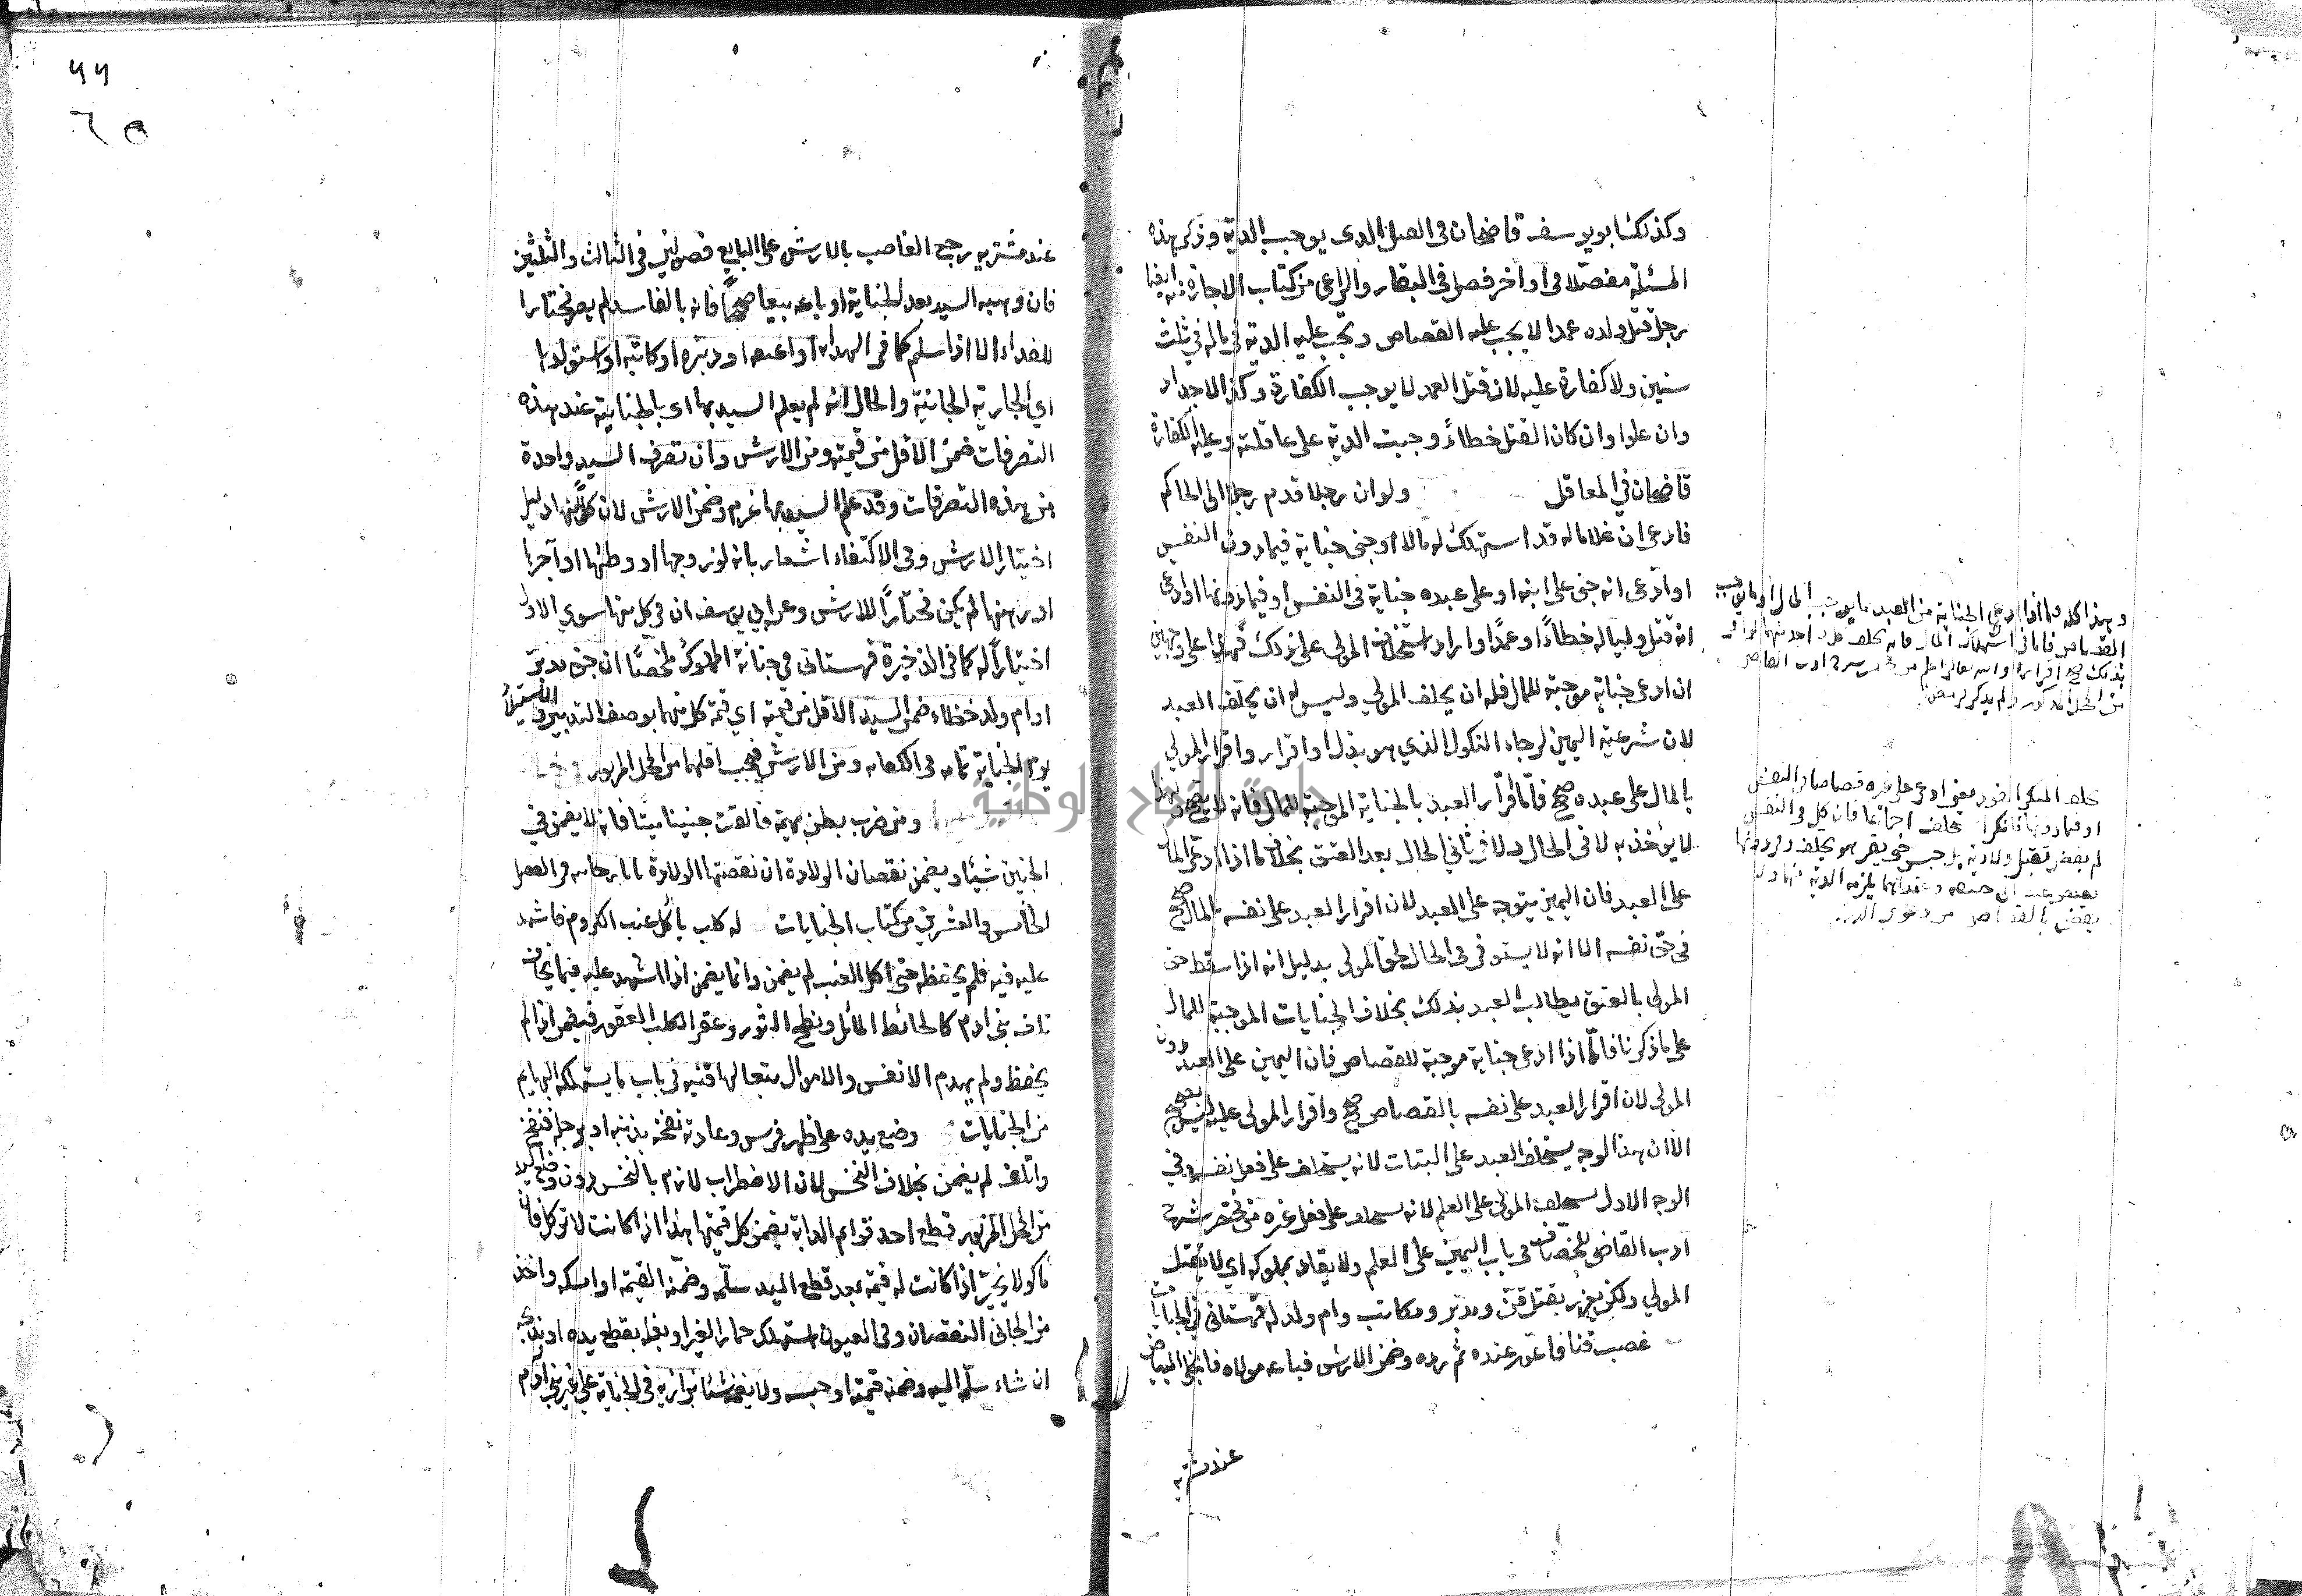 وكذلك ابو يوسف قاضخان فى الفصل الذى يوجب الدية وذكر هذه
المسئلة مفصلا فى اواخر فصل فى البقار والراعى من كتاب الاجارة منه ايضا
رجل قتل ولده عمدا لا يجب عليه القصاص وتجب عليه الدية فى ماله فى ثلث
سنين ولا كفارة عليه لان قتل العمد لا يوجب الكفارة وكذا الاجداد
وان علوا وان كان القتل خطاءً وجبت الدية على عاقلته وعليه الكفارة
قاضخان فى المعاقل ولو ان رجلا قدم رجلا الى الحاكم
فادعى ان غلاما له قد استهلك له مالا او جنى جناية فيما دون النفس
او ادعى انه جنى على ابنه او على عبده جناية فى النفس او فيما دونها او ادعى
انه قتل وليا له خطاءً او عمدًا واراد استحلاف المولى على ذلك فهذا على وجهين
ان ادعى جناية موجبة للمال فله ان يحلف المولى وليس له ان يحلف العبد
لان شرعية اليمين لرجاء النكول الذي هو بذل او اقرار واقرار المولى
بالمال على عبده صحيح فاما اقرار العبد بالجناية الموجبة للمال فانه لا يصح ولهذا
لا يؤخذ به لا فى الحال ولا فى ثانى الحال بعد العتق بخلاف ما اذا ادعى المال
على العبد فان اليمين يتوجه على العبد لان اقرار العبد على نفسه بالمال صحيح
فى حق نفسه الا انه لا يستوفى فى الحال لحق المولى بدليل انه اذا سقط حق
المولى بالعتق يطالب العبد بذلك بخلاف الجنايات الموجبة للمال
على ما ذكرنا فاما اذا ادعى جناية موجبة للقصاص فان اليمين على العبد دون
المولى لان اقرار العبد على نفسه بالقصاص صحيح واقرار المولى عليه ليس بصحيح
الا ان هذا الوجه يستحلف العبد على البتات لانه يستحلف على فعل نفسه وفى
الوجه الاول يستحلف المولى على العلم لانه يستحلف على فعل غيره من مختصر شرح
ادب القاضى للخصاف فى باب اليمين على العلم ولا يقاد بمملوكه اي لا يقتل
المولي ولكن يعزر بقتل قن ومدبر ومكاتب وام ولد له قهستانى فى الجنايات
غصب قنا فاعور عنده ثم رده وضمن الارش فباعه مولاه فانجلى البياض
عند مشتريه
وهذا كله فيما اذا ادعى الجناية من العبد
حلف المنكر القود يعنى ادعى على غيره قصاصا فى النفس
او فيما دونها فانكر يحلف اجماعا فان نكل فى النفس
لم يقض بقتل ولا دية بل حبس حتى يقر او يحلف وفيما دونها
٦٦
٦٥
عند مشتريه رجع الغاصب بالارش على البايع فصولين فى الثالث والثلثين
فان وهبه السيد بعد الجناية او باعه بيعا صحيحًا فانه بالفاسد لم يصر مختارا
للفداء الا اذا سلم كما فى الهداية او اعتقه او دبره او كاتبه او استولدها
اي الجارية الجانية والحال انه لم يعلم السيد بها اى بالجناية عند هذه
التصرفات ضمن الاقل من قيمته ومن الارش وان تصرف السيد واحدة
من هذه التصرفات وقد علم السيد بها غرم وضمن الارش لان كلا منها دليل
اختيار الارش وفى الاكتفاء اشعار بانه لو زوجها او وطئها او آجرها
او رهنها لم يكن مختارًا للارش وعن ابي يوسف ان فى كل منها سوي الاول
اختيارًا له كما فى الذخيرة قهستانى فى جناية المملوك ملخصًا ان جنى مدبر
او ام ولد خطاء ضمن السيد الاقل من قيمته اي قيمة كل منهما بوصف التدبير والاستيلاد
يوم الجناية تمامه فى الكفاية ومن الارش فيجب اقلهما من المحل المزبور
ومن ضرب بطن بهيمة فالقت جنينا ميتا فانه لا يضمن فى
الجنين شيئا ويضمن نقصان الولادة ان نقصتها الولادة تاتارخانيه فى الفصل
الخامس والعشرين من كتاب الجنايات له كلب ياكل عنب الكروم فاشهد
عليه فيه فلم يحفظه حتى اكل العنب لم يضمن وانما يضمن اذا اشهد عليه فيما يخاف
تلف بنى ادم كالحائط المائل ونطح الثور وعقر الكلب العقور فيضمن اذا لم
يحفظ ولم يهدم الانفس والاموال تبعا لها قنيه فى باب ما يستهلكه البهايم
من الجنايات وضع يده على ظهر فرس وعادته نفحه بذنبه او برجله فنفح
واتلف لم يضمن بخلاف النخس لان الاضطراب لازم بالنخس دون وضع اليد
من المحل المزبور قطع احد قوائم الدابة يضمن كل قيمتها هذا اذا كانت لا توكل فان
ماكولا يخير اذا كانت له قيمة بعد قطع اليد سلمه وضمنه القيمة او امسكه واخذ
من الجانى النقصان وفى العيون استهلك حمار الغير او بغله بقطع يده او بذبحه
ان شاء سلمه اليه وضمنه قيمته او حبسه ولا يضمنه شيئا بزازيه فى الجناية على غير بنى آدم
جامعة النجاح الوطنية